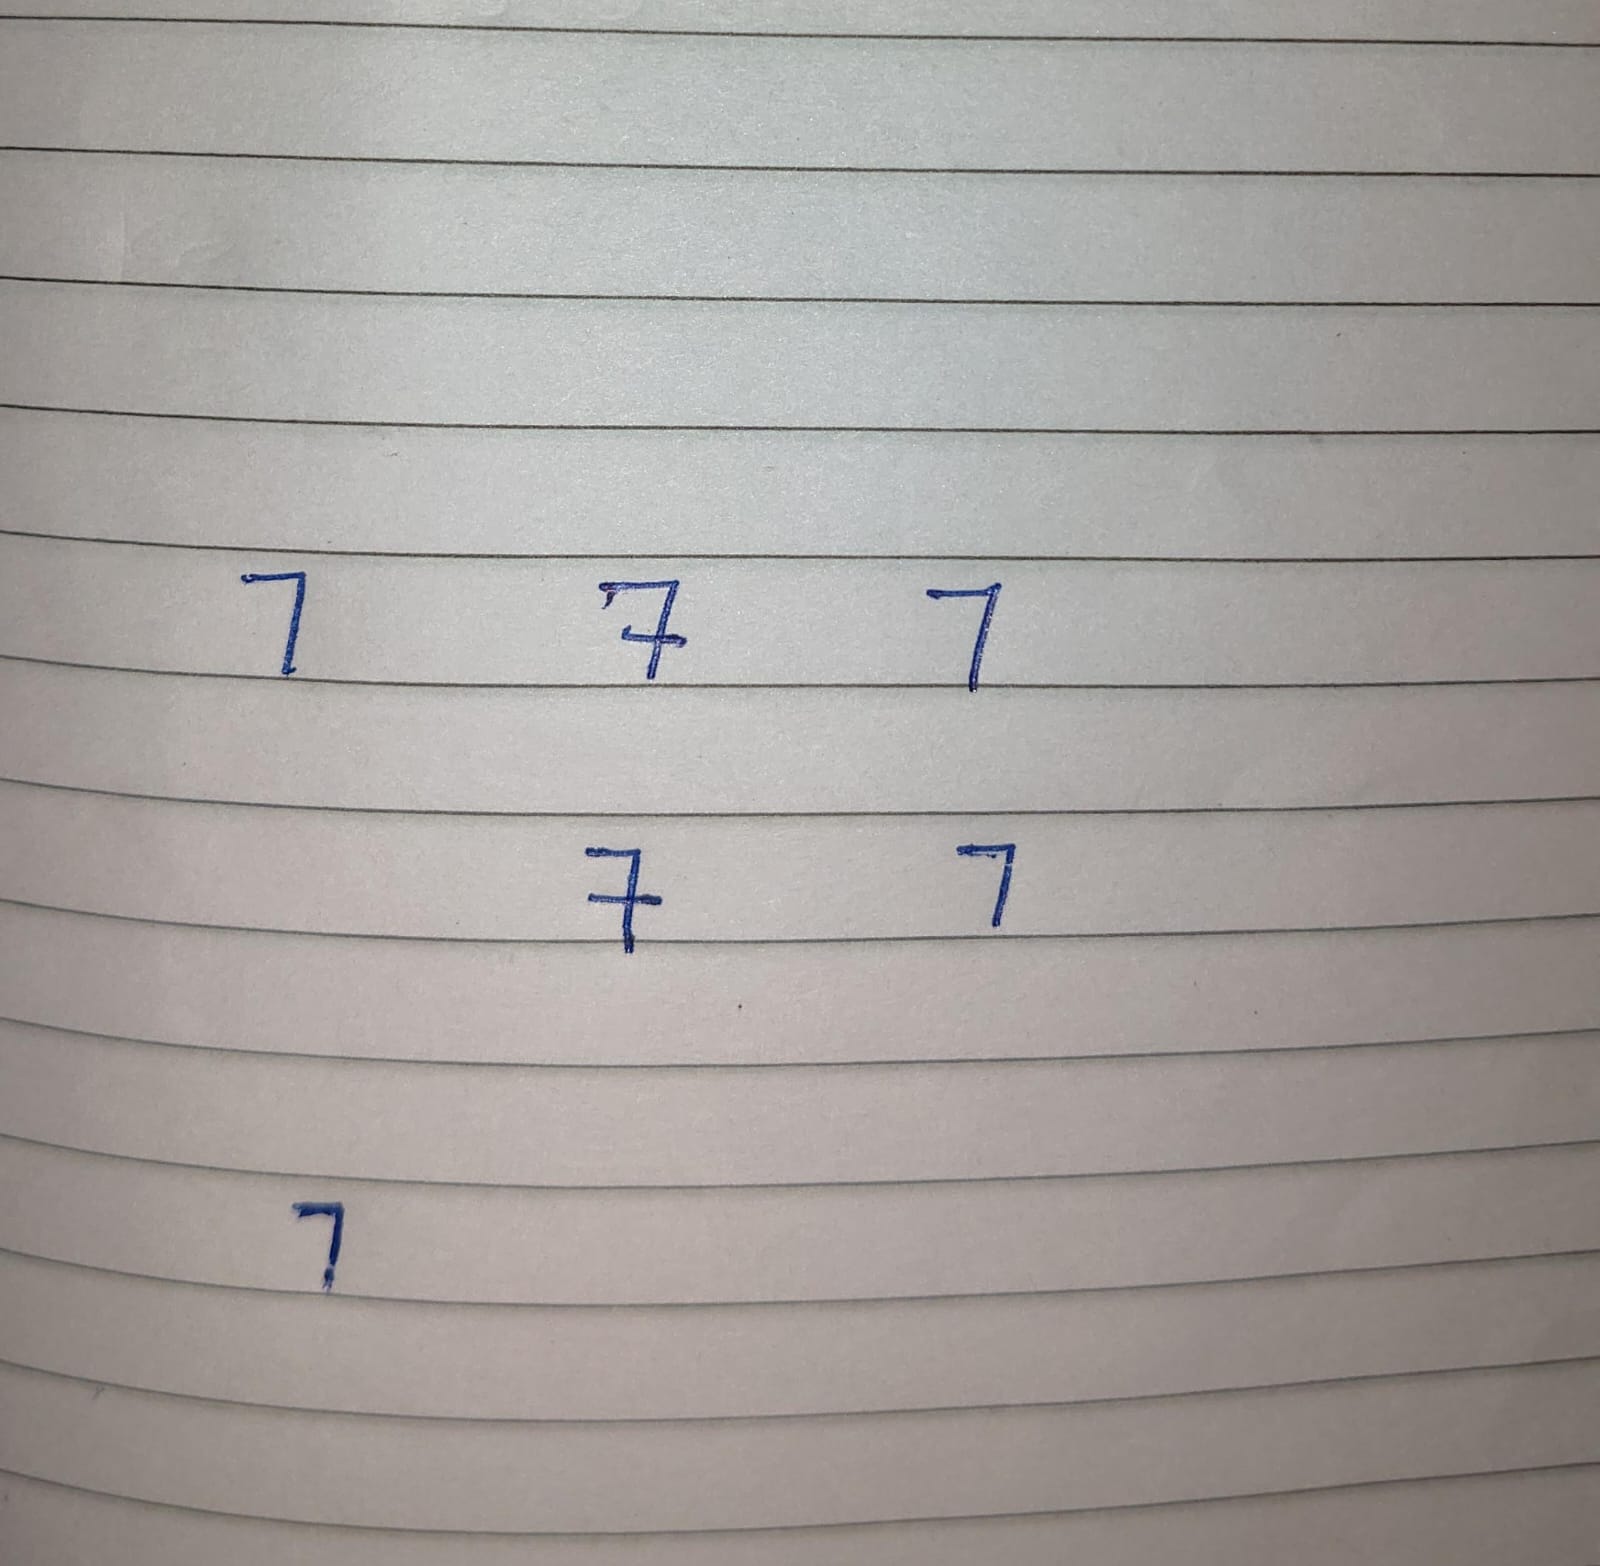 7 7 7
7 7
7